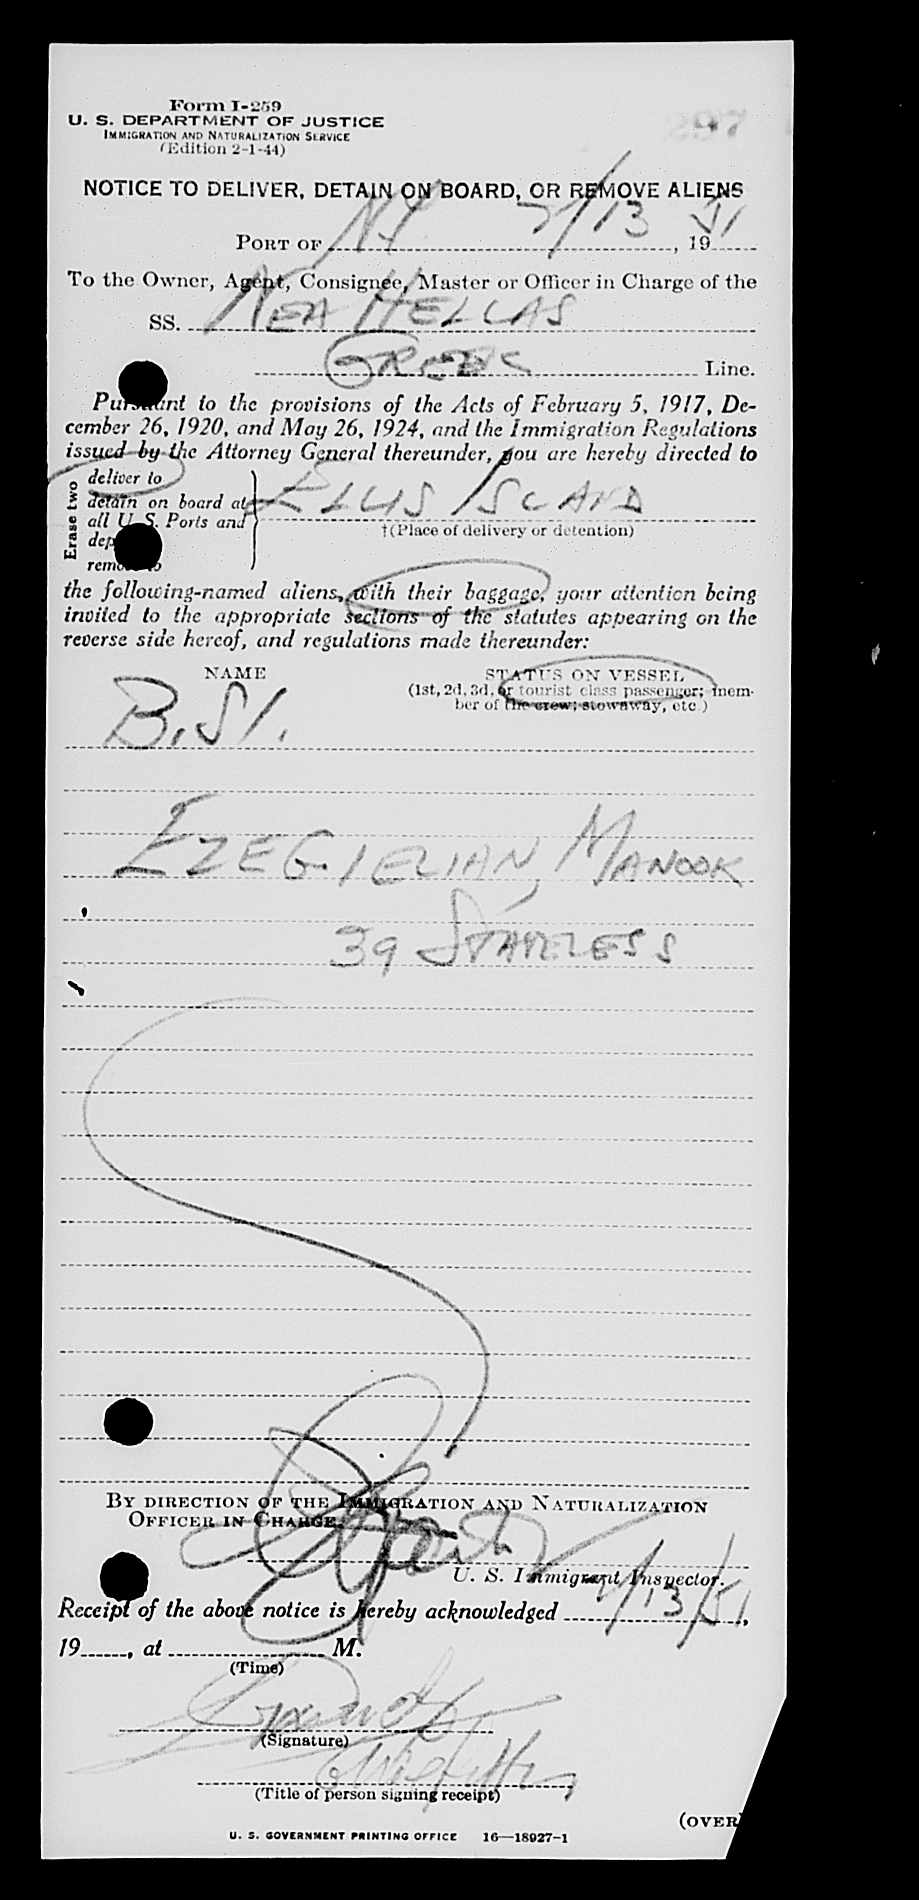 Form I-259
U. S. DEPARTMENT OF JUSTICE
IMMIGRATION AND NATURALIZATION SERVICE
(Edition 2-1-44)
NOTICE TO DELIVER, DETAIN ON BOARD, OR REMOVE ALIENS
PORT OF NY 7/13, 1951
To the Owner, Agent, Consignee, Master or Officer in Charge of the
SS. NEA HELLAS
GREEK Line.
Pursuant to the provisions of the Acts of February 5, 1917, De-
cember 26, 1920, and May 26, 1924, and the Immigration Regulations
issued by the Attorney General thereunder, you are hereby directed to
Erase two
deliver to
detain on board at
all U. S. Ports and
dep
remove to
ELLIS ISLAND
†(Place of delivery or detention)
the following-named aliens, with their baggage, your attention being
invited to the appropriate sections of the statutes appearing on the
reverse side hereof, and regulations made thereunder:
NAME
STATUS ON VESSEL
(1st, 2d, 3d, or tourist class passenger; mem-
ber of the crew; stowaway, etc.)
B.S.I.
EZEGIELIAN, MANOOK
39 STATELESS
BY DIRECTION OF THE IMMIGRATION AND NATURALIZATION
OFFICER IN CHARGE.
U. S. Immigrant Inspector.
Receipt of the above notice is hereby acknowledged 7/13/51,
19, at M.
(Time)
(Signature)
(Title of person signing receipt)
(OVER)
U. S. GOVERNMENT PRINTING OFFICE 16—18927-1